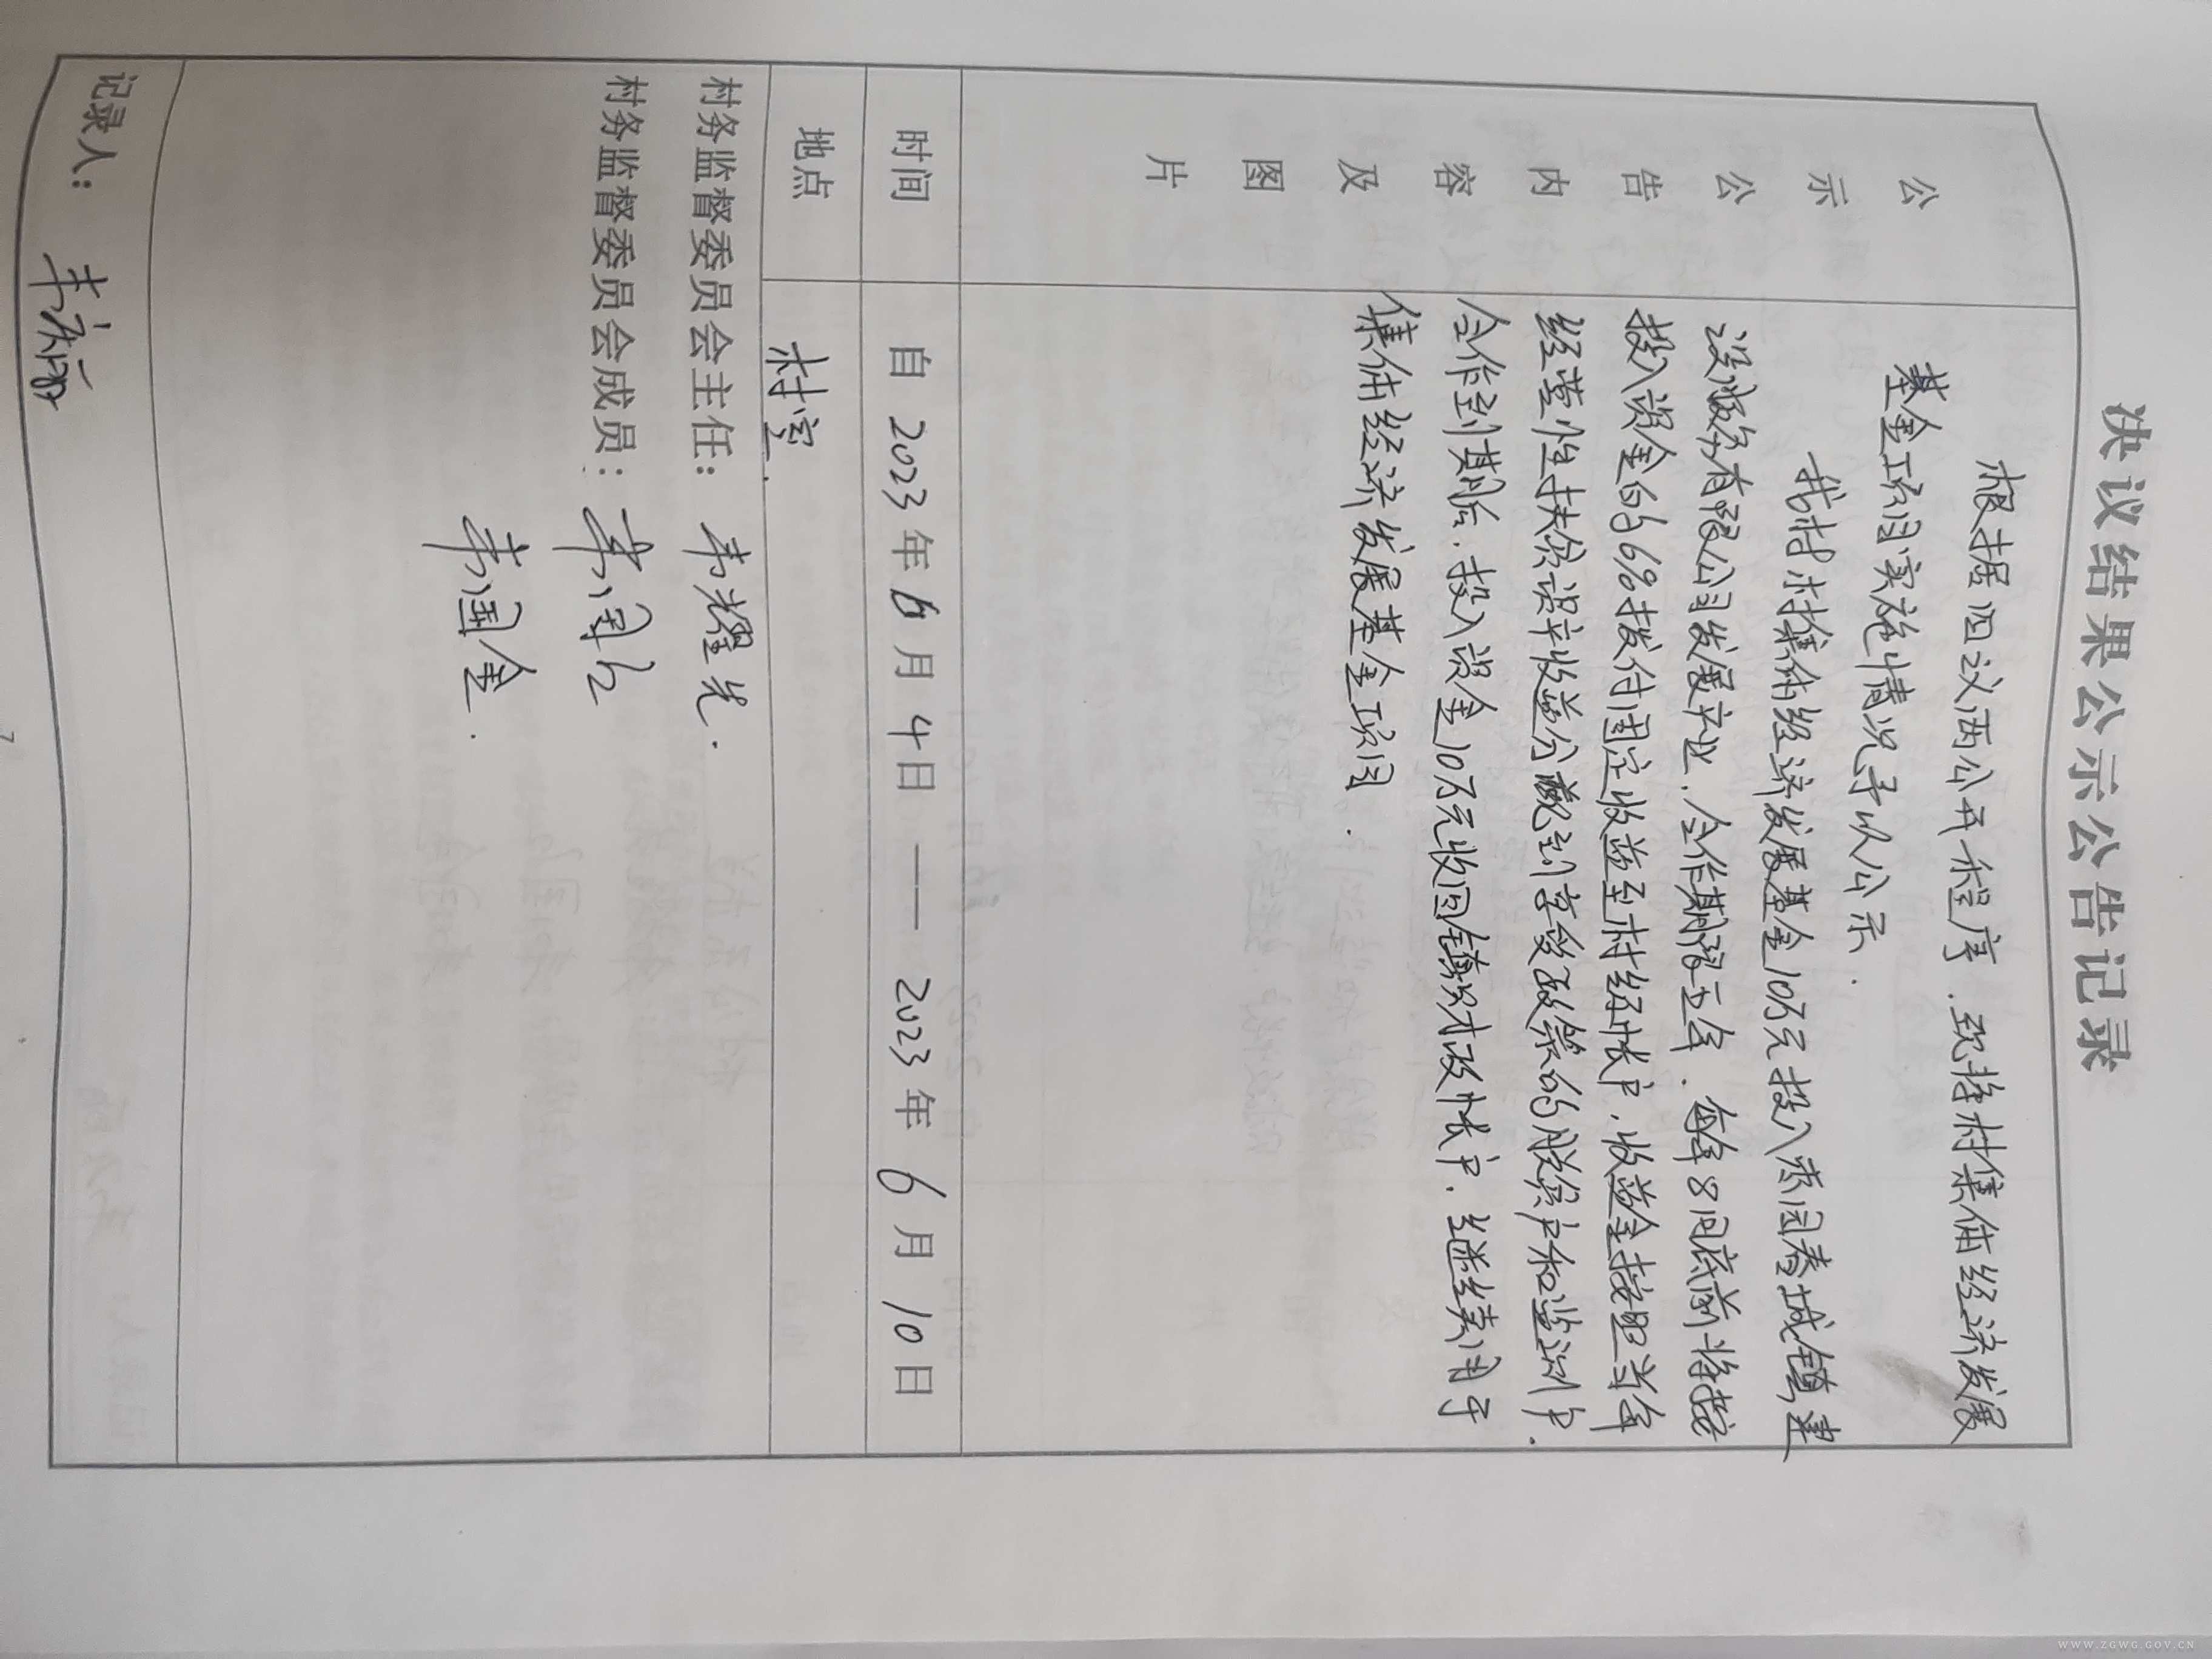 决议结果公示公告记录
公示公告内容及图片
根据四议两公开程序.现将村集体经济发展
基金项目实施情况予以公示.
我村村集体经济发展基金10万元投入枣园春城镇建
设服务有限公司发展产业.合作期限五年.每年8月底前将按
投入资金的6%拨付固定收益至村经帐户.收益金按照当年
经营性扶贫资产收益分 到享受政策的脱贫户和监测户.
合作到期后.投入资金10万元收回镇财政帐户.继续用于
集体经济发展基金项目.
时间 自2023年6月4日——2023年6月10日
地点 村室.
村务监督委员会主任: 韦耀光.
村务监督委员会成员: 韦国
韦国金.
记录人: 韦
WWW.ZGWG.GOV.CN